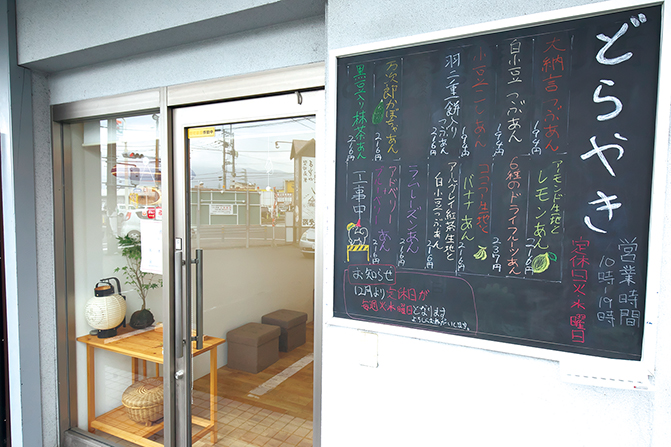 どらやき
営業時間
10時-19時
定休日火水曜日
大納言つぶあん
194円
白小豆つぶあん
194円
小豆こしあん
194円
羽二重餅入りつぶあん
216円
万次郎かぼちゃあん
216円
黒豆入り抹茶あん
216円
アーモンド生地とレモンあん
216円
6種のドライフルーツあん
237円
ココア生地とバナナあん
216円
アールグレイ紅茶生地と白小豆つぶあん
216円
ラムレーズンあん
216円
216円
工事中
お知らせ
12月より定休日が
毎週火水曜日となります
よろしくお願いいたします。